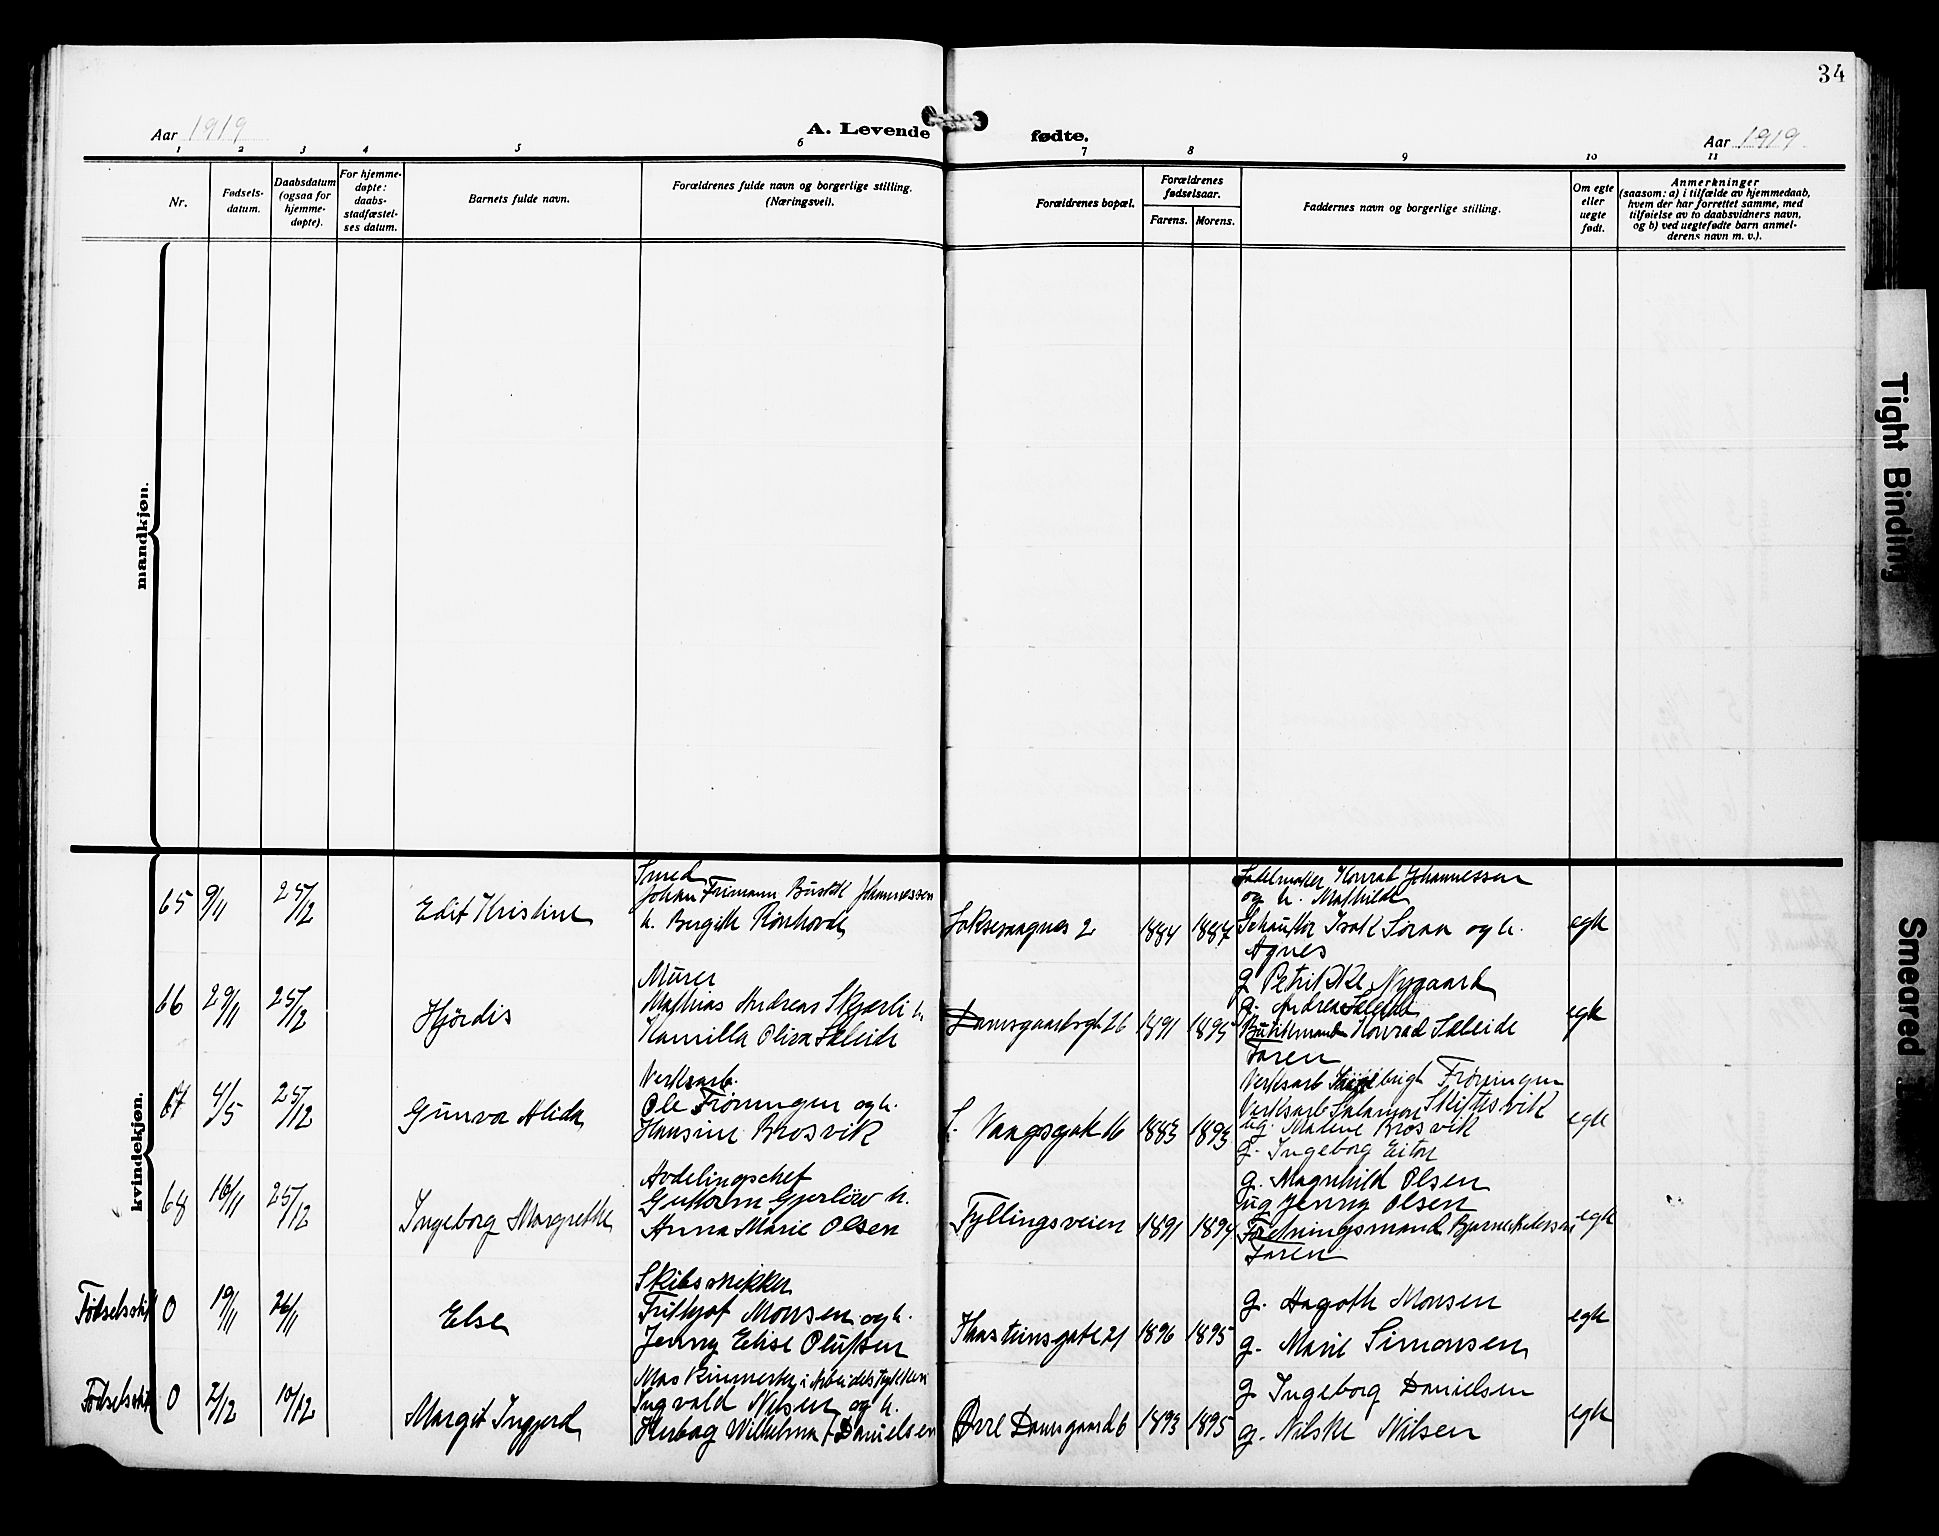 34
Aar 1919
A. Levende fødte.
Aar 1919
1 2 3 4 5 6 7 8 9 10 11
Nr.
Fødsels-
datum.
Daabsdatum
(ogsaa for
hjemme-
døpte).
For hjemme-
døpte:
daabs-
stadfæstel-
ses datum.
Barnets fulde navn.
Forældrenes fulde navn og borgerlige stilling.
(Næringsvei).
Forældrenes bopæl.
Forældrenes
fødselsaar.
Farens. Morens.
Faddernes navn og borgerlige stilling.
Om egte
eller
uegte
født.
Anmerkninger
(saasom: a) i tilfælde av hjemmedaab,
hvem der har forrettet samme, med
tilføielse av to daabsvidners navn,
og b) ved uegtefødte barn anmel-
derens navn m. v.).
mandkjøn.
kvindekjøn.
65 9/11 25/12
Edit Kristine
Smed
Johan Frimann Johannessen
h. Bergithe
2
1884 1887
Sadelmaker Konrad Johannessen
og h. Mathilde
Isak og h.
Agnes
egte
66 29/11 25/12
Hjørdis
Murer
Mathias Andreas Skjerli h.
Kamilla Oliva Sæleide
Damsgaardsgt 26
1891 1895
g. Petrikke Nygaard
g. Andrea Sæleide
Konrad Sæleide
Faren
egte
67 4/5 25/12
Gunvor Alida
Verksarb.
Ole Frøningen og h.
Hansine Brosvik
L. Vaagsgate 16
1883 1893
Verksarb Frøningen
Verksarb Salamon Skiftesvik
ug. Malene Brosvik
g. Ingeborg
egte
68 16/11 25/12
Ingeborg Margrethe
Avdelingschef
Guttorm Gjerløw h.
Anna Marie Olsen
Fyllingsveien
1891 1894
g. Magnhild Olsen
ug Jenny Olsen
Forretningsmand Bjarne Pedersen
Faren
egte
Fødselsstift 0 19/11 26/11
Else
Skibssnikker
Frithjof Monsen og h.
Jenny Elise Olufsen
Haasteinsgate 21
1896 1895
g. Hagoth Monsen
g. Marie Simonsen
egte
Fødselsstift 0 2/12 10/12
Margit Ingjerd
i Arbeidsstykken
Ingvald Nilsen og h.
Wilhelma f. Danielsen
Øvre Damsgaard 6
1893 1895
g. Ingeborg Danielsen
g. Nilske Nilsen
egte
Tight Binding
Smeared